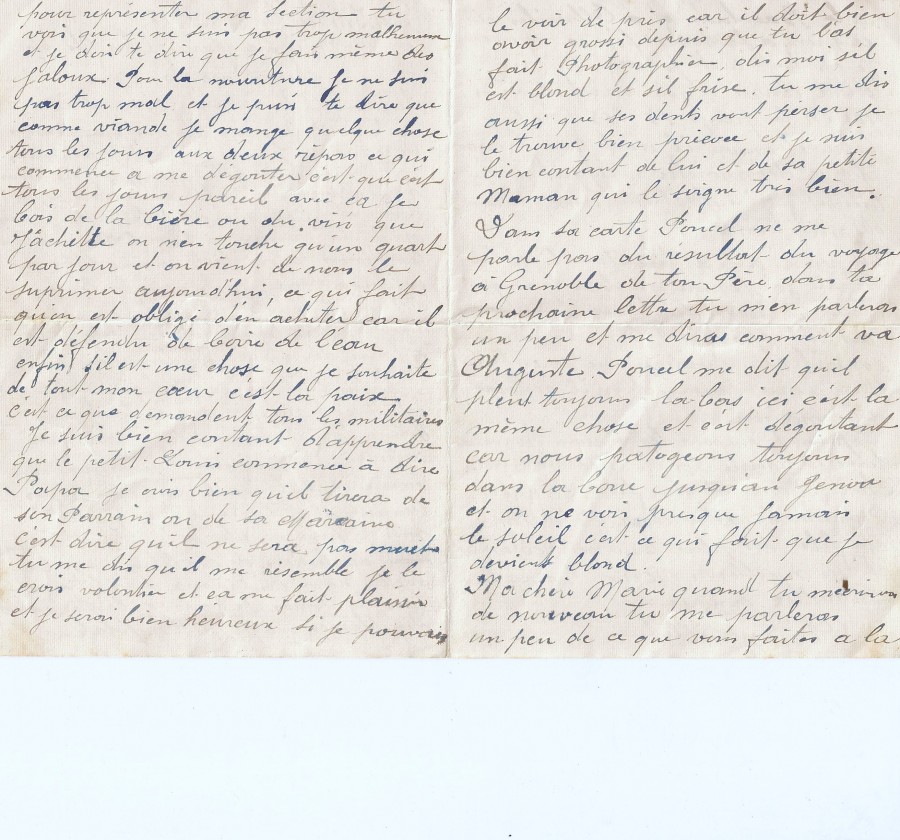 pour représenter ma section tu
vois que je ne suis pas trop malheureux
et je dois te dire que je fais même des
jaloux. Pour la nourriture je ne suis
pas trop mal et je puis te dire que
comme viande je mange quelque chose
tous les jours aux deux repas ce qui
commence a me dégouter c'est que c'est
tous les jours pareil avec ça je
bois de la bière ou du vin que
j'achette on n'en touche qu'un quart
par jour et on vient de nous le
suprimer aujourd'hui, ce qui fait
qu'on est obligé d'en acheter car il
est défendu de boire de l'eau
enfin s'il est une chose que je souhaite
de tout mon cœur c'est la paix
c'est ce que demandent tous les militaires
Je suis bien contant d'apprendre
que le petit Louis commence à dire
Papa je crois bien qu'il tirera de
son Parrain ou de sa Marraine
c'est dire qu'il ne sera pas muet
tu me dis qu'il me resemble je le
crois volontier et ca me fait plaisir
et je serai bien heureux si je pouvais
le voir de près car il doit bien
avoir grossi depuis que tu l'as
fait Photographier, dis moi s'il
est blond et s'il frise. tu me dis
aussi que ses dents vont perser je
le trouve bien et je suis
bien contant de lui et de sa petite
Maman qui le soigne tres bien.
Dans sa carte Poncel ne me
parle pas du résultat du voyage
à Grenoble de ton Père, dans ta
prochaine lettre tu m'en parleras
un peu et me diras comment va
Auguste. Poncel me dit qu'il
pleut toujours la-bas ici c'est la
même chose et c'est dégoutant
car nous patogeons toujours
dans la boue jusqu'au genou
et on ne voir presque jamais
le soleil c'est ce qui fait que je
devient blond.
Ma chère Marie quand tu mécriras
de nouveau tu me parleras
un peu de ce que vous faites a la